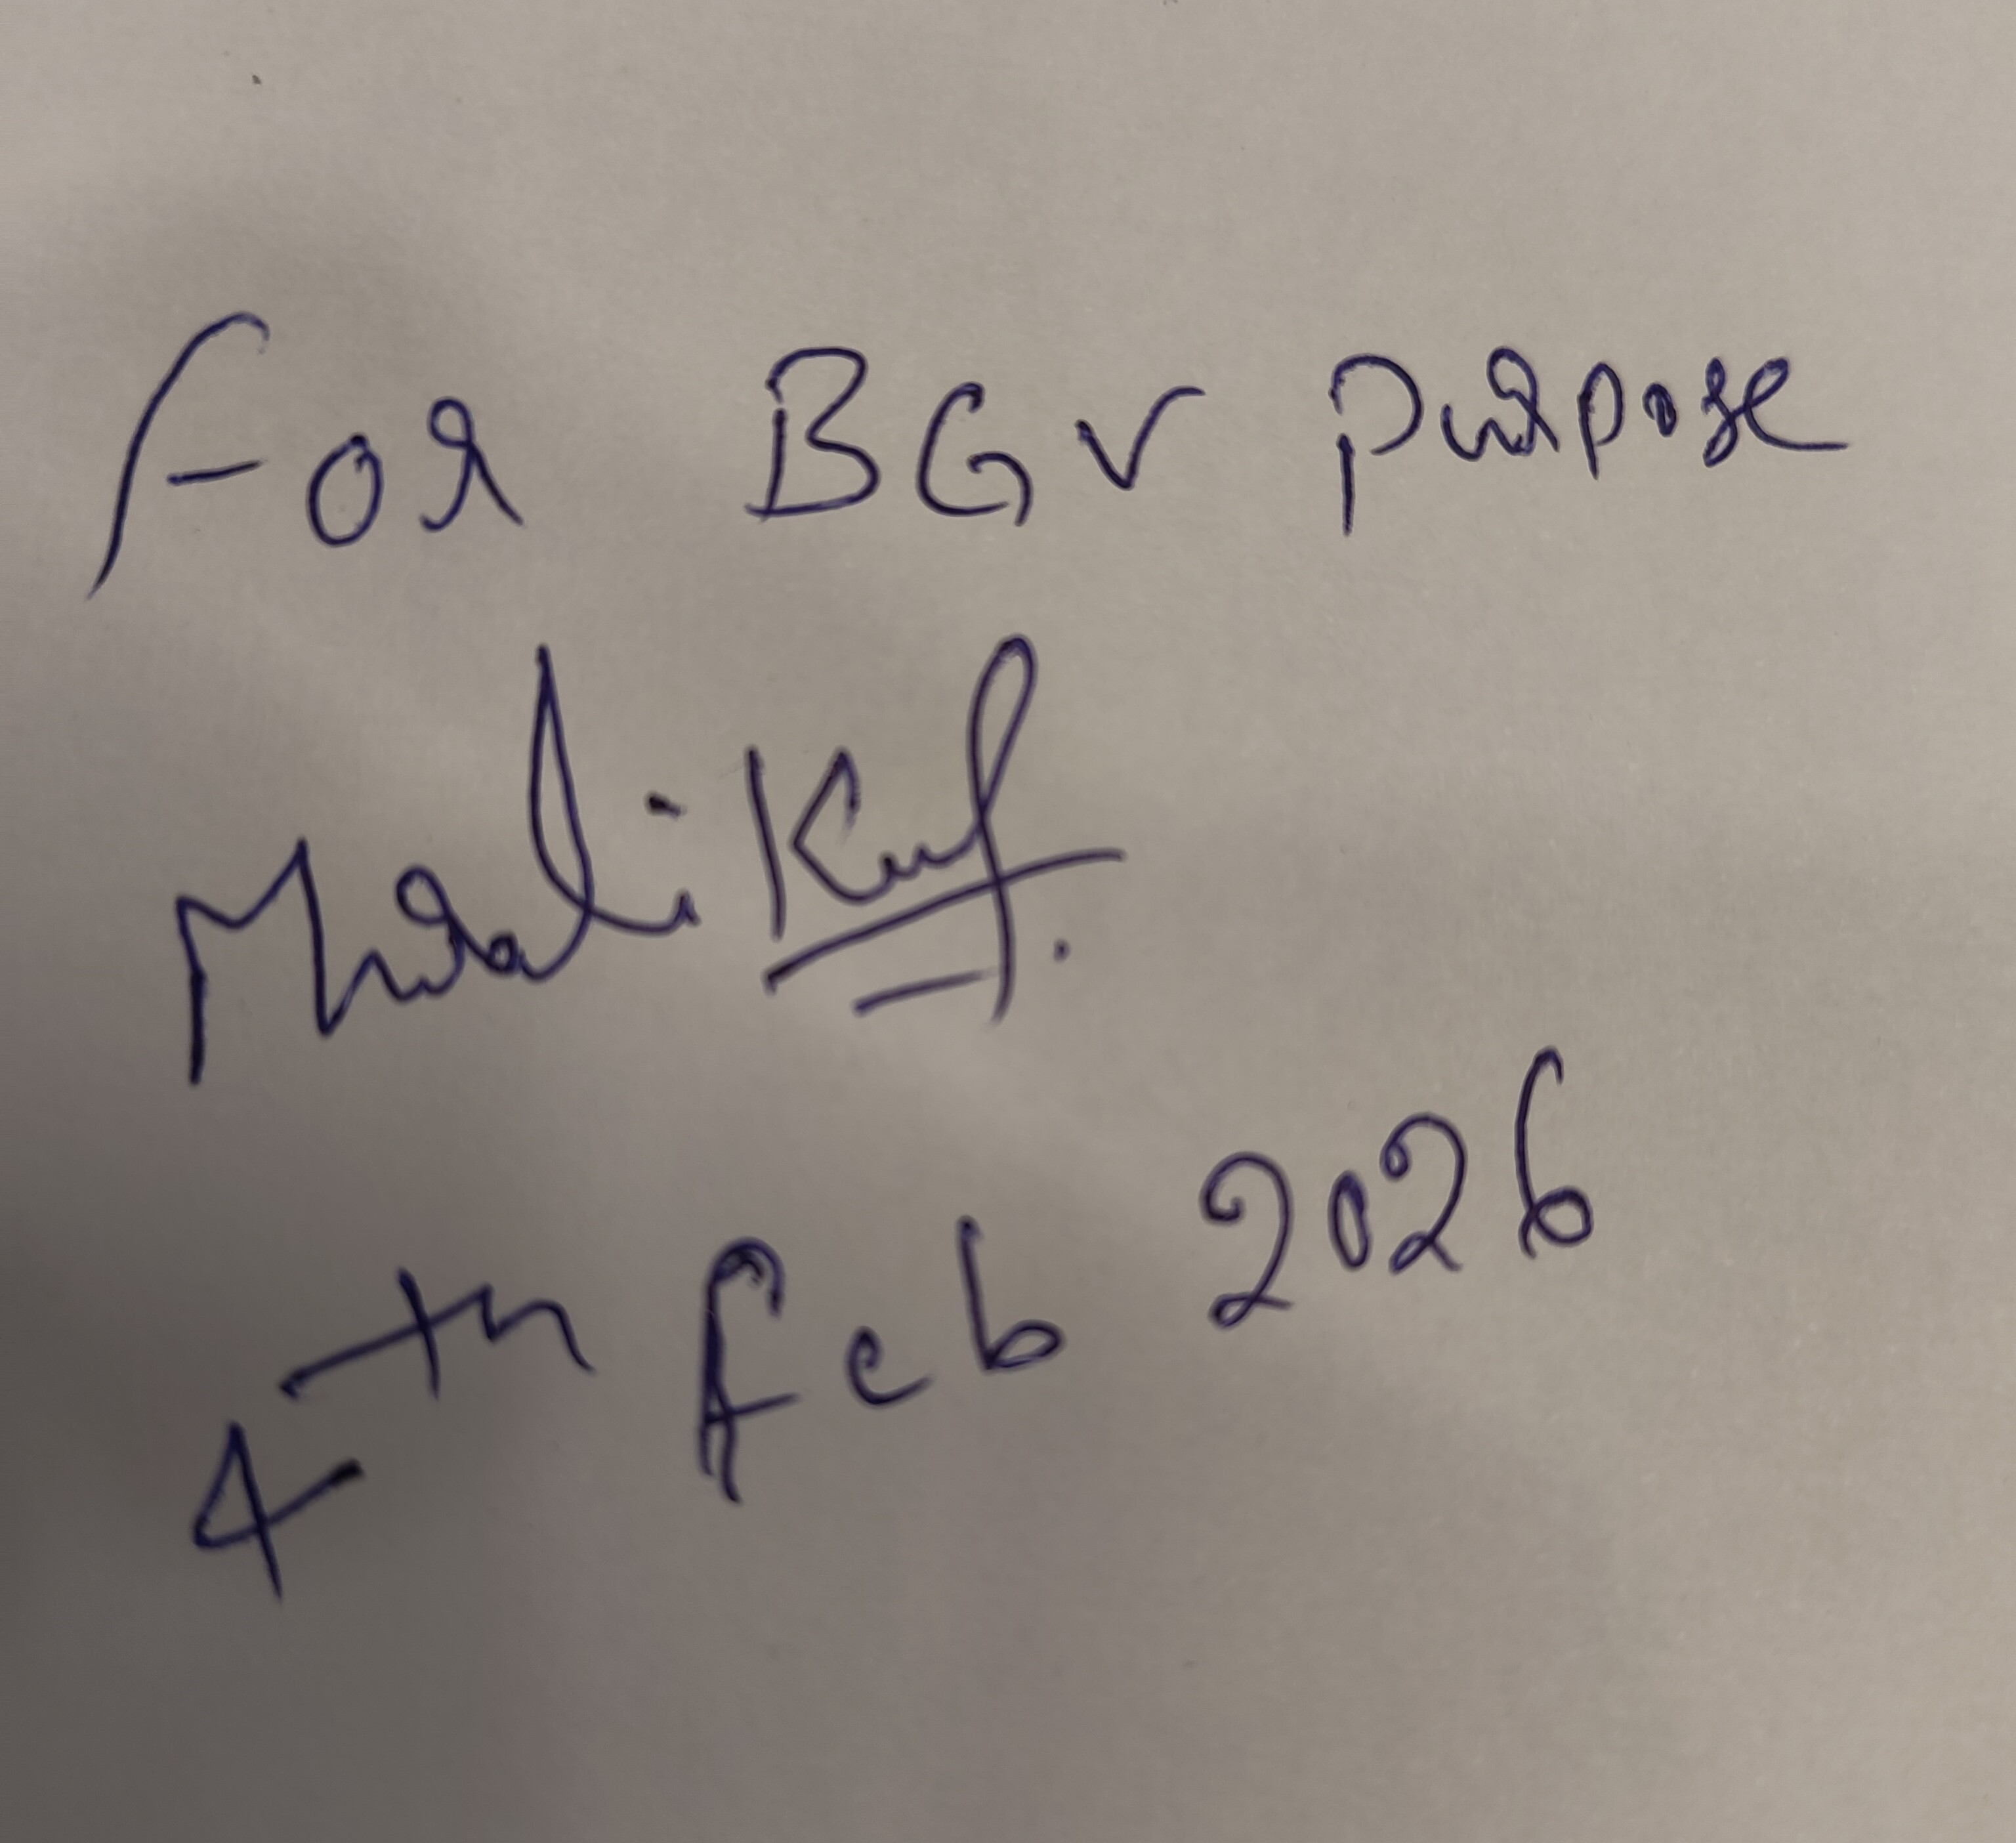 For BGV purpose
Murali Kum
4th Feb 2026